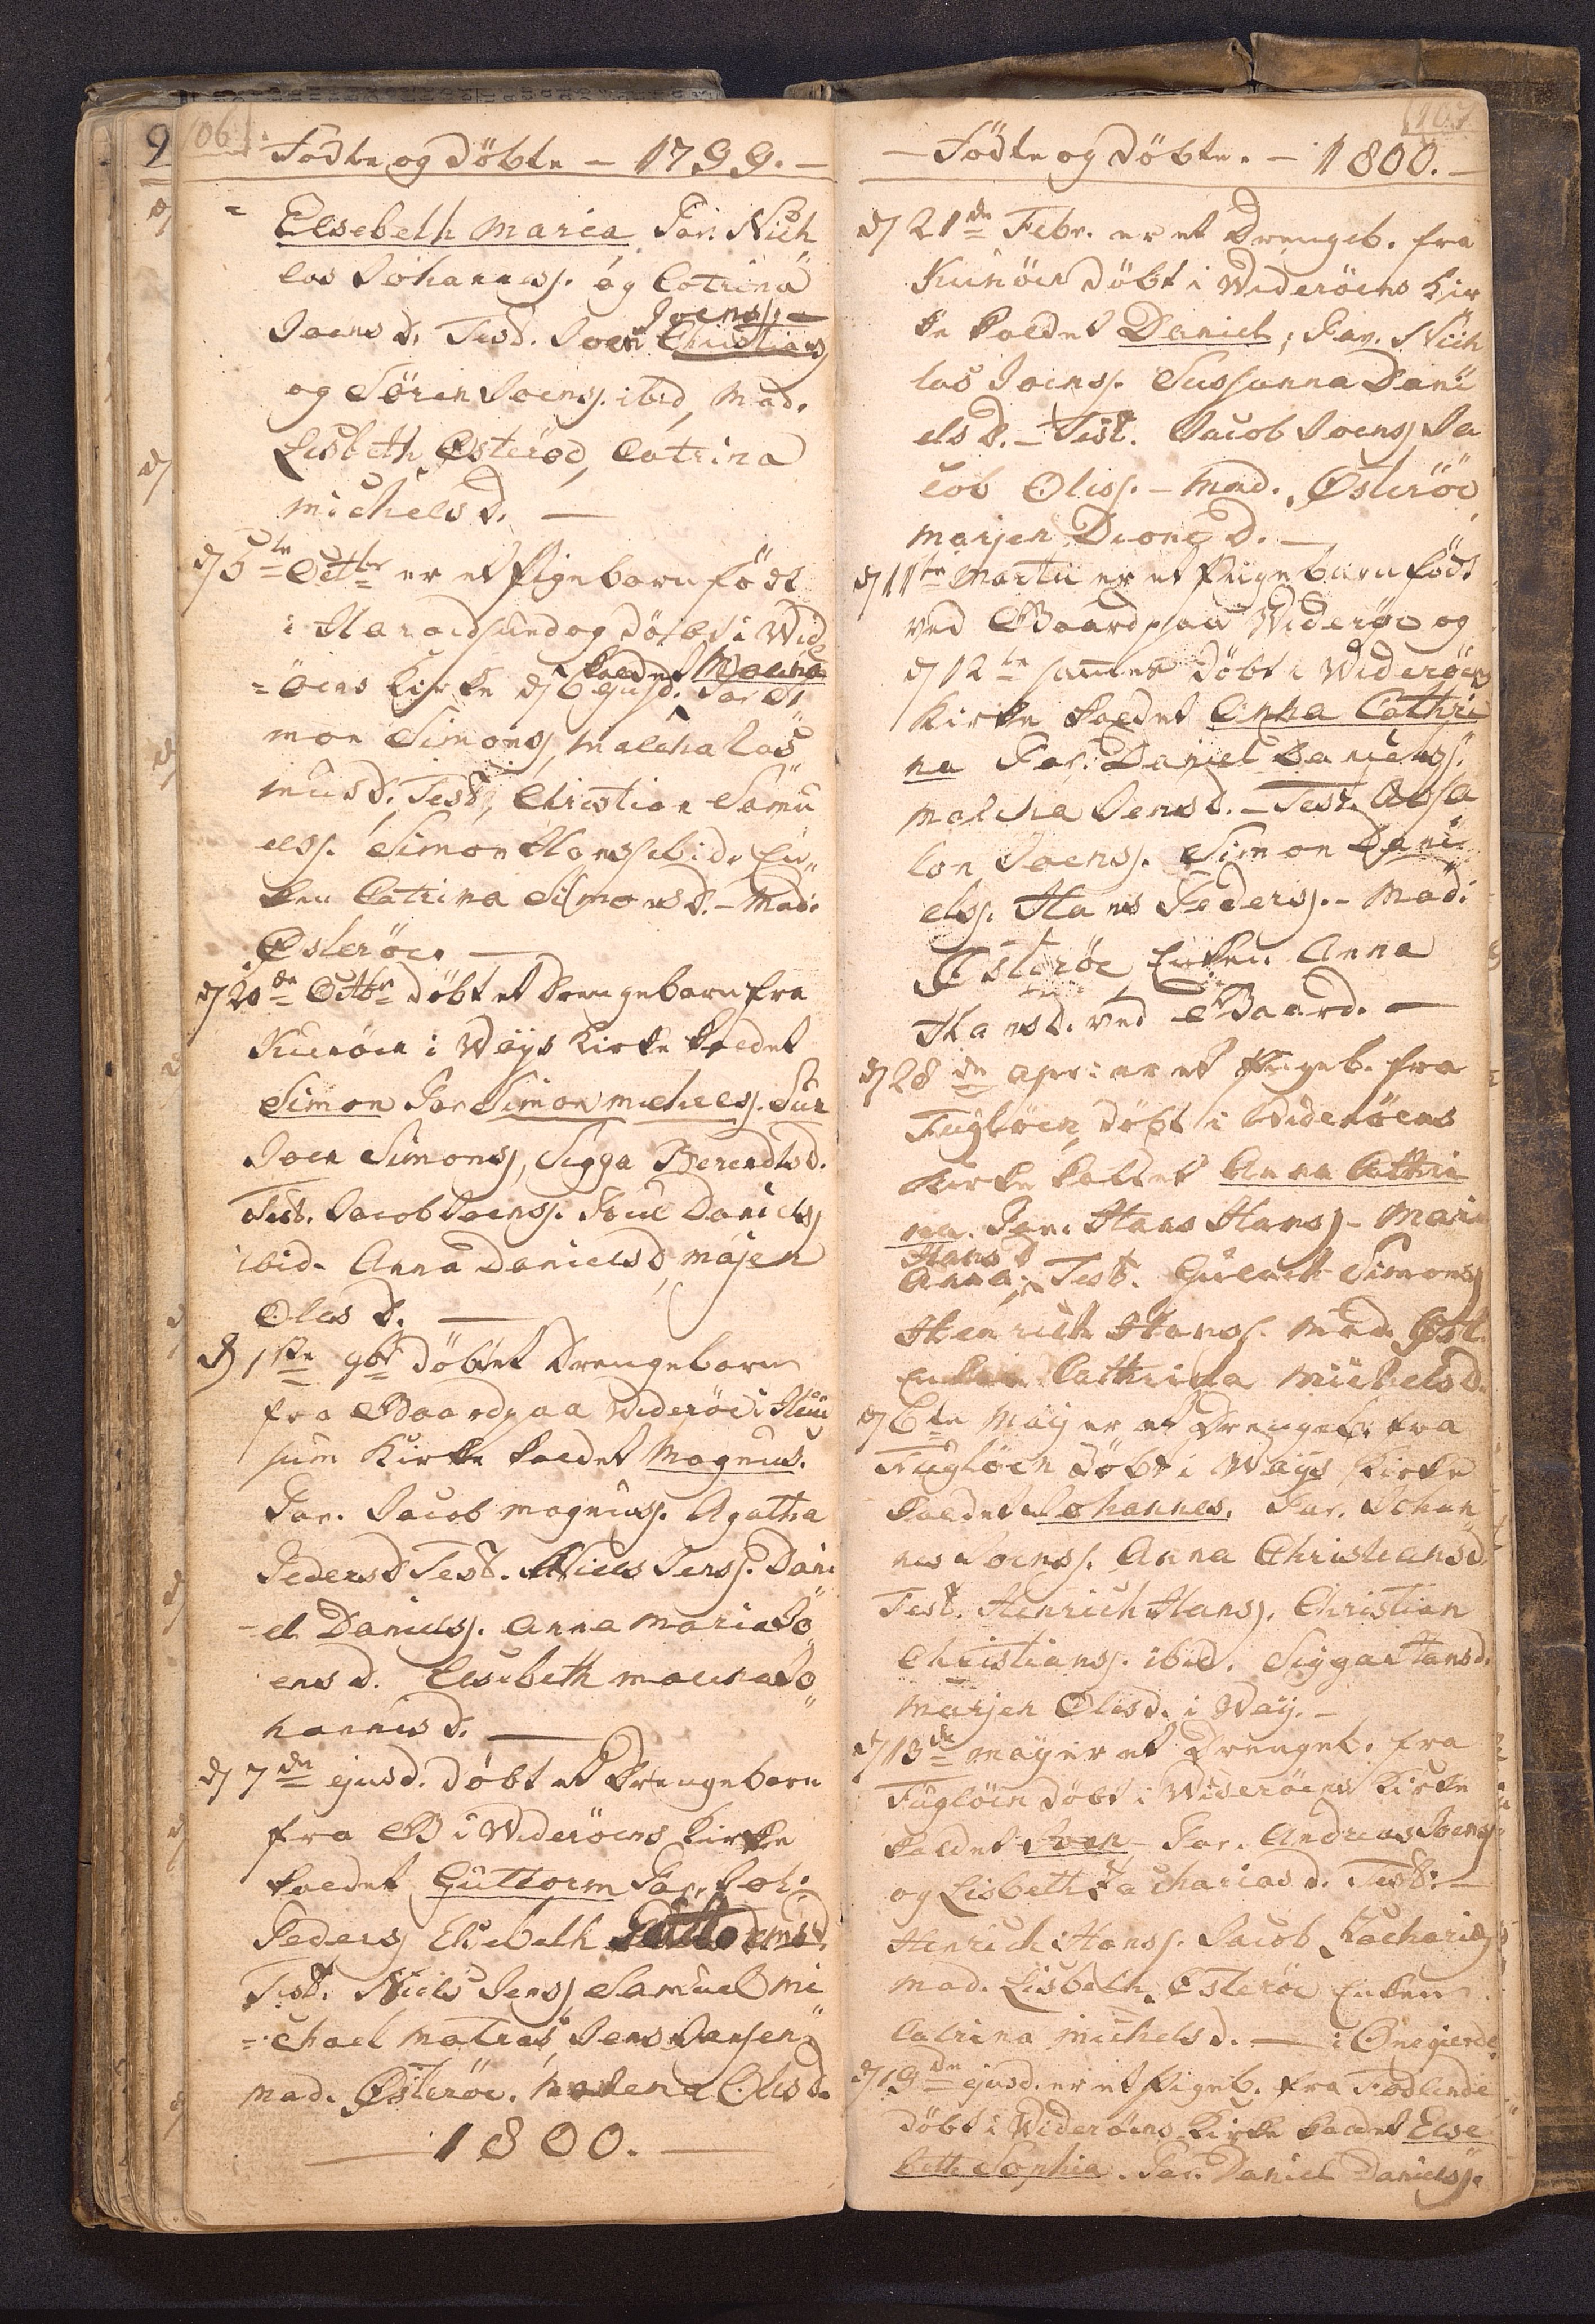 106.
Födte og Döbte - 1799. -
Elsebeth Maria Par. Nich
las Johanness. og Catrina
Joensd. Test. Joen Joenss. Christians
og Sören Joenss. ibid, Mad.
Lisbeth Österöe, Catrina
Michelsd. -
d 5te Octbr er et Pigebarn födt
i Haraldsund og döbt i Wid
= öens Kirke d 6 ejusd. kaldet Malena Par. Si
mon Simons, Malena Ras
musd. Test, Christian Samu
elss. Simon Hanss. ibid. En
ken Catrina Simonsd. - Mad.
Österöe. -
d 20de Octbr döbt et Drengebarn fra
Kunöen i Waÿs Kirke kaldet
Simon Par Simon Michels.
Joen Simons, Sigga Berendtsd.
Test. Jacob Joenss. Poul Daniels
ibid. Anna Danielsd, Majen
Olesd. -
d 1ste 9br döbt et Drengebarn
fra Boardpaa Wideröe i Hun
sum Kirke kaldet Magnus.
Par. Jacob Magnuss. Agatha
Pedersd Test. Niels Jenss. Dani
-el Danielss. Anna Maria Jo
ensd. Elsebeth Malena Jo
hannesd. -
d 7de ejusd. döbt et Drengebarn
fra B i Wideröens Kirke
kaldet Guttorm Par. Joh:
Peders Elsebeth Guttormsd.
Test. Niels Jens Samuel Mi
=chael Matras, Jens Jensen
Mad. Österöe. Malena Olesd.
- 1800. -
107
- Födte og Döbte. - 1800. -
d 21de Febr. er et Drengeb. fra
Kunöen döbt i Wideröens Kir
ke kaldet Daniel, Par. Nich
las Joenss. Sussanna Dani
elsd. - Test. Jacob Joens Ja
cob Oless. - Mad. Österöe
Marjen Dionisd. -
d 11te Martii er et Pigebarn födt
ved Boardpaa Wideröe og
d 12te samme döbt i Wideröens
Kirke kaldet Anna Cathri
na Par. Daniel Danielss.
Malena Jensd. - Test. Absa
lon Joenss. Simon Dani
elss. Hans Pederss. - Mad.
Österöe Enken Anna
Hansd. ved Board. -
d 28de apr: er et Pigeb. fra
Fuglöen döbt i Wideröens
Kirke kaldet Anna Cathri
na. Par. Hans Hans - Mari
Anna Hansd Test. Guluck Simons
Henrich Hanss. Mad. Öst.
Enken Cathrina Michelsd.
d 6te Maÿ er et Drengeb. fra
Fuglöen döbt i Waÿs Kirke
kaldet Johannes. Par. Johan
nes Joenss. Anna Christiansd.
Test. Henrich Hanss. Christian
Christianss. ibid. Sigga Hansd.
Marjen Olesd. i Waÿ. -
d 13de Maÿ er et Drengeb. fra
Fuglöen döbt i Wideröens Kirke
kaldet Joen - Par. Andreas Joens
og Lisbeth Zachariasd. Test: -
Henrich Hanss. Jacob Zacharies
Mad. Lisbeth Österöe Enken
Catrina Michelsd. - i Önegierde
d 19de ejusd. er et Pigeb. fra Födlende
döbt i Wideröens Kirke kaldet Else
beth Sophia. Par. Daniel Danielss.